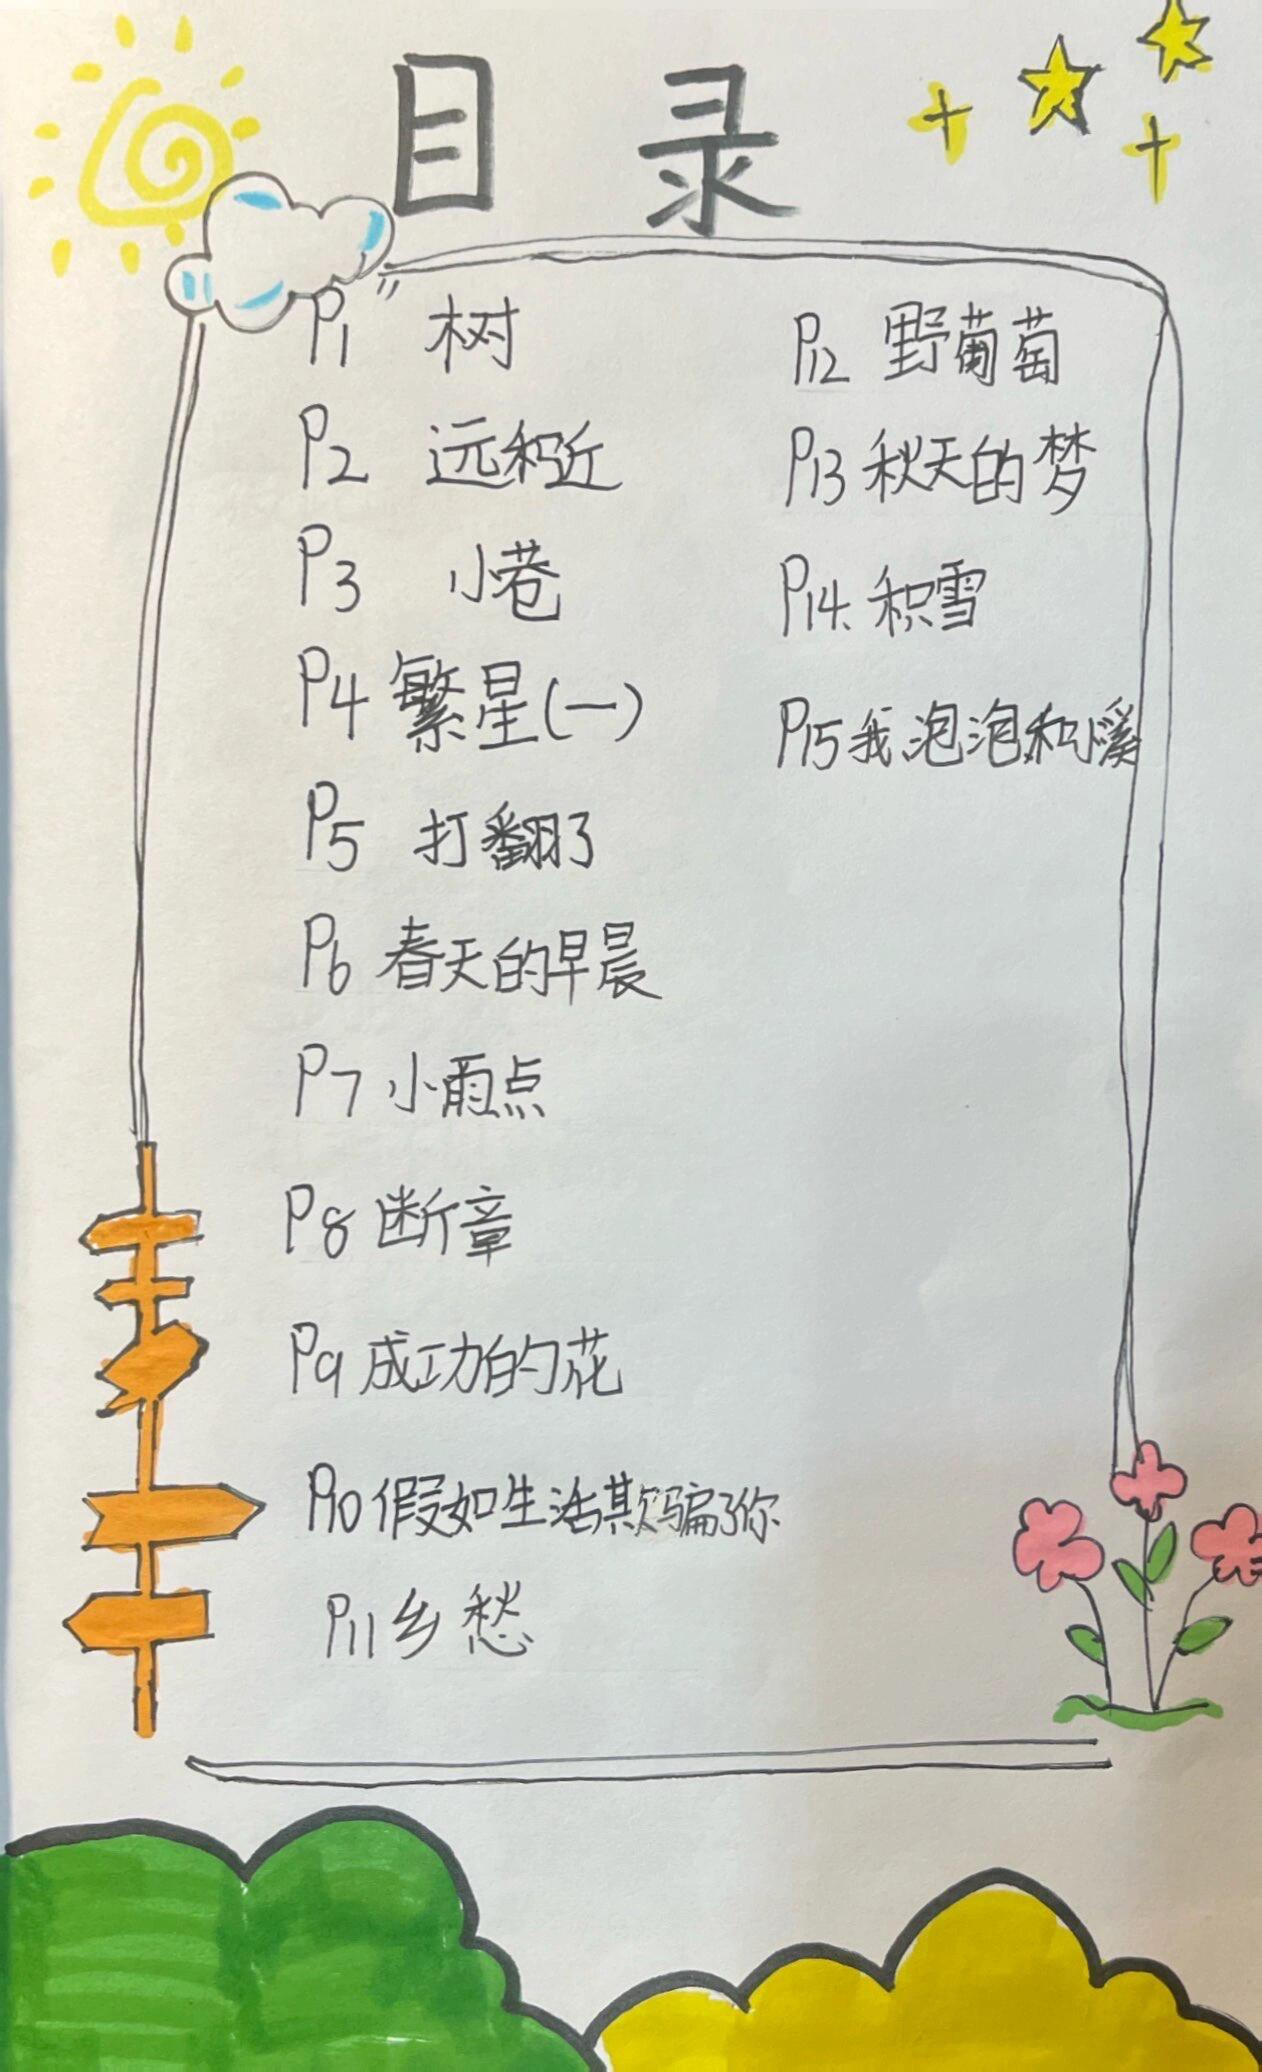 目录
P1 树
P2 远和近
P3 小巷
P4 繁星(一)
P5 打翻了
P6 春天的早晨
P7 小雨点
P8 断章
P9 成功的花
P10 假如生活欺骗了你
P11 乡愁
P12 野葡萄
P13 秋天的梦
P14. 积雪
P15 我,泡泡,和小溪